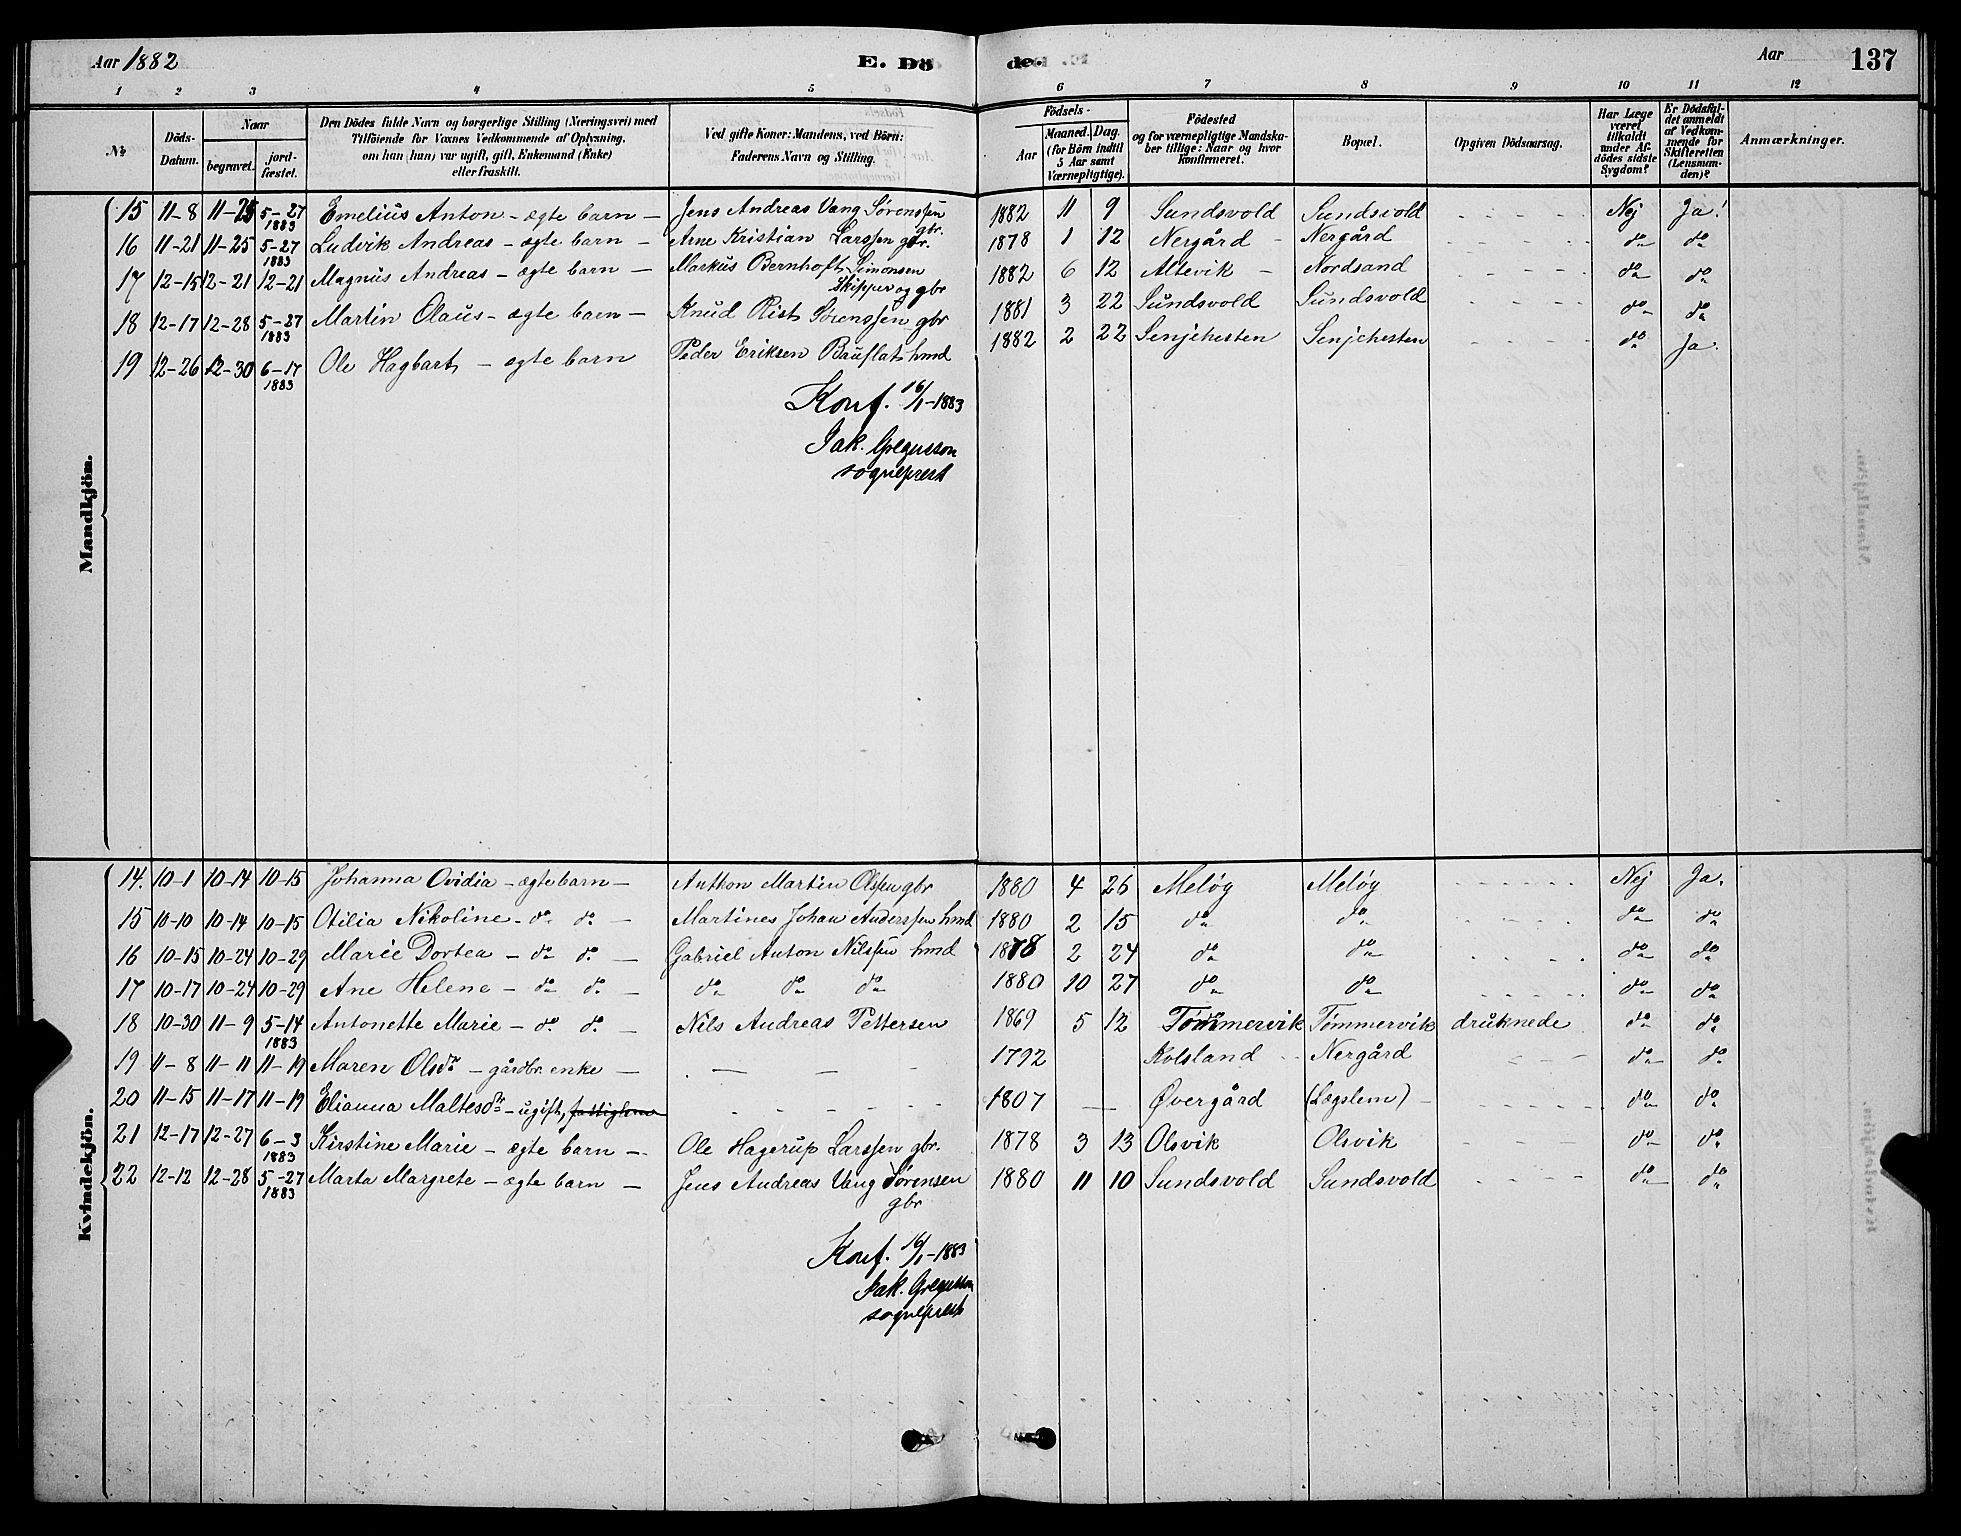 Aar 1882 E. Dö de. Aar 137
1 2 3 4 5 6 7 8 9 10 11 12
№ Döds-Datum. Naar begravet. jordfæstet. Den Dödes fulde Navn og borgerlige Stilling (Næringsvei) med Tilföiende for Voxnes Vedkommende af Oplysning, om han (hun) var ugift, gift, Enkemand (Enke) eller fraskilt. Ved gifte Koner: Mandens, ved Börn: Faderens Navn og Stilling. Födsels- Aar Maaned. Dag. (for Börn indtil 5 Aar samt Værnepligtige). Födested og for værnepligtige Mandskaber tillige: Naar og hvor Konfirmeret. Bopæl. Opgiven Dödsaarsag. Har Læge været tilkaldt under Afdödes sidste Sygdom? Er Dödsfaldet anmeldt af Vedkommende for Skifteretten (Lensmanden)? Anmærkninger.
Mandkjön.
15 11-8 11-25 5-27 1883 Emelius Anton - ægte barn - Jens Andreas Vang Sørenssen gbr. 1882 11 9 Sundsvold Sundsvold Nej Ja!
16 11-21 11-25 5-27 1883 Ludvik Andreas - ægte barn - Arne Kristian Larssen gbr. 1878 1 12 Nergård - Nergård do do
17 12-15 12-21 12-21 Magnus Andreas - ægte barn - Markus Bernhoft Simonsen Skipper og gbr 1882 6 12 Altevik - Nordsand do do
18 12-17 12-28 5-27 1883 Martin Olaus - ægte barn - Knud Rist Sörenssen gbr 1881 3 22 Sundsvold Sundsvold do do
19 12-26 12-30 6-17 1883 Ole Hagbart - ægte barn Peder Eriksen Bauflat hmd 1882 2 22 Senjehesten Senjehesten do Ja.
Konf. 16/1-1883
Jak. Gregusson
sogneprest
Kvindekjön.
14. 10-1 10-14 10-15 Johanna Ovidia - ægte barn - Antton Martin Olssen gbr 1880 4 26 Meløy Meløy Nej Ja.
15 10-10 10-14 10-15 Otilia Nikoline - do do - Martines Johan Anderssen hmd 1880 2 15 do do do do
16 10-15 10-24 10-29 Marie Dortea - do do - Gabriel Anton Nilssen hmd 1878 2 24 do do do do
17 10-17 10-24 10-29 Ane Helene - do do - do do do 1880 10 27 do do do do
18 10-30 11-9 5-14 1883 Antonette Marie - do do - Nils Andreas Pettersen 1869 5 12 Tømmervik Tömmervik druknede do do
19 11-8 11-11 11-19 Maren Olsdr - gårdbr. enke - 1792 Kolsland - Nergård do do
20 11-15 11-17 11-19 Elianna Maltesdr - ugift, fattiglem 1807 Øvergård (Lægslem) - do do
21 12-17 12-27 6-3 1883 Kirstine Marie - ægte barn - Ole Hagerup Larssen gbr. 1878 3 13 Olsvik Olsvik do do
22 12-12 12-28 5-27 1883 Marta Margrete - ægte barn - Jens Andreas Vang Sørensen gbr 1880 11 10 Sundsvold Sundsvold do do
Konf. 16/1-1883
Jak. Gregusson
sogneprest